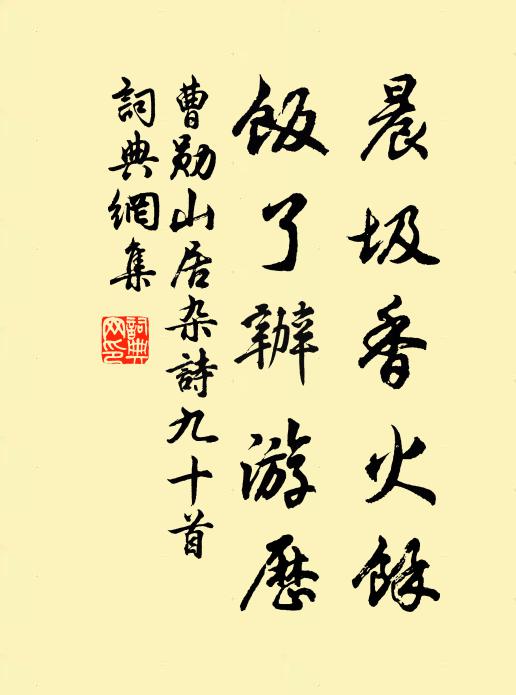 晨圾香火餘
飯了辦游歷
曹勛山居杂詩九十首
詞典網集
詞典网印